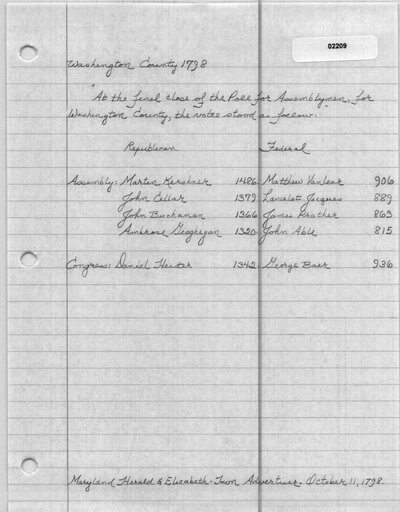 02209
Washington County 1798
"At the final close of the Poll for Assemblymen, for
Washington County, the votes stood as follow:"
Republican Federal
Assembly: Marten Kershner 1486 Matthew VanLear 906
John Cellar 1379 Lancelot Jacques 889
John Buchanan 1366 James Prather 863
Ambrose Geoghegan 1320 John Able 815
Congress: Daniel Heister 1342 George Baer 936
Maryland Herald & Elizabeth-Town Advertiser. October 11, 1798.